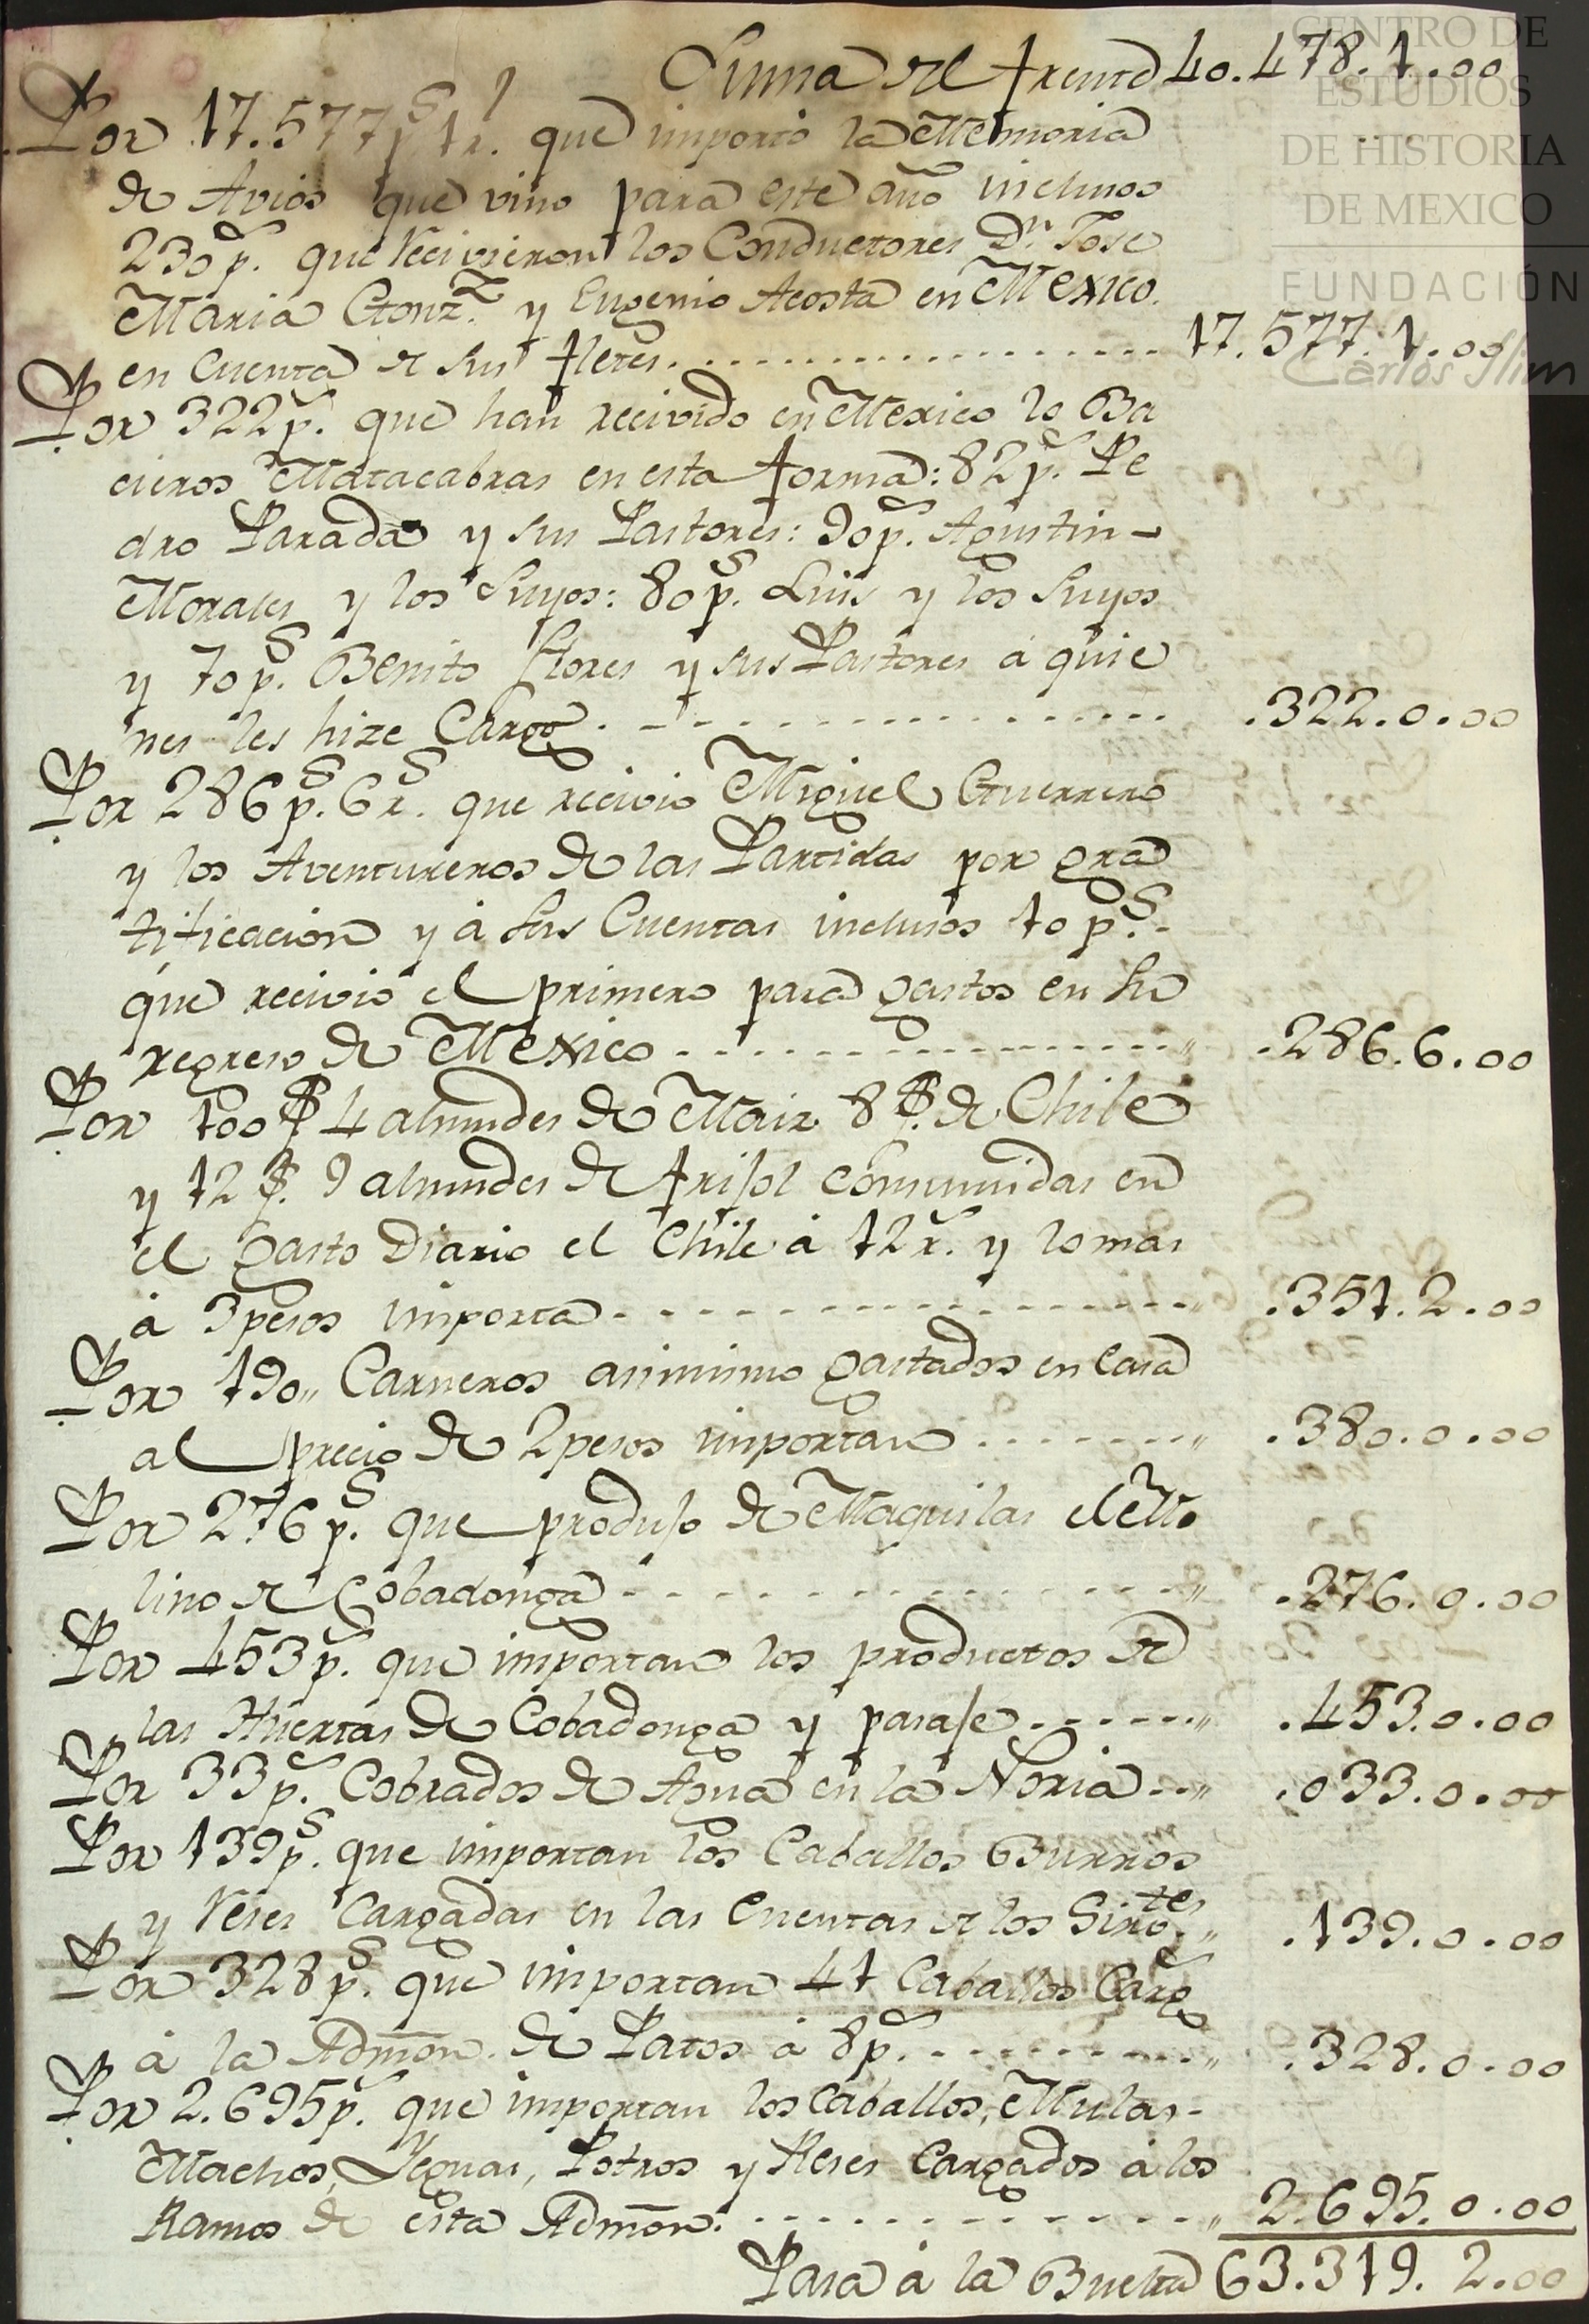 Suma del frente 40.478.1.00
Por 17.577 p.s 1 r.l que importó la Memoria
de Avios que vino para este año inclusos
230 p.s que Recivieron los Conductores D.n Jose
Maria Gonz.z y Eugenio Acosta en Mexico.
en Cuenta de sus fletes. 17.577.1.00
Por 322 p.s que han recivido en Mexico lo Ba
cieros Matacabras en esta forma: 82 p.s Pe
dro Parada y sus Pastores: 90 p.s Agustin
Morales y los Suyos: 80 p.s Luis y los Suyos
y 70 p.s Benito Flores y sus Pastores á quie
nes les hize Cargo. .322.0.00
Por 286 p.s 6 r.s que recivió Miguel Guerrero
y los Aventureros de las Partidas por gra
tificacion y á sus Cuentas inclusos 10 p.s
que recivió el primero para gastos en su
regreso de Mexico .286.6.00
Por 100 f. 4 almudes de Maiz 8 f. de Chile
y 12 f. 9 almudes de frisol consumidas en
el gasto Diario el Chile á 12 r.s y lo mas
á 3 pesos importa .351.2.00
Por 190,, Carneros asimismo gastados en Casa
al precio de 2 pesos importan .380.0.00
Por 276 p.s que produjo de Maquilas el Mo
lino de Cobadonga .276.0.00
Por 453 p.s que importan los productos de
las Huertas de Cobadonga y pasaje .453.0.00
Por 33 p.s Cobrados de Agua en la Noria .033.0.00
Por 139 p.s que importan los Caballos Burros
y Reses Cargadas en las Cuentas de los Sirv.tes .139.0.00
Por 328 p.s que importan 41 Caballos Carg.s
á la Admōn. de Patos á 8 p.s .328.0.00
Por 2.695 p.s que importan los Caballos, Mulas
Machos, Yeguas, Potros y Reses Cargados á los
Ramos de esta Admōn. 2.695.0.00
Pasa á la Buelta 63.319.2.00
CENTRO DE
ESTUDIOS
DE HISTORIA
DE MEXICO
FUNDACIÓN
Carlos Slim